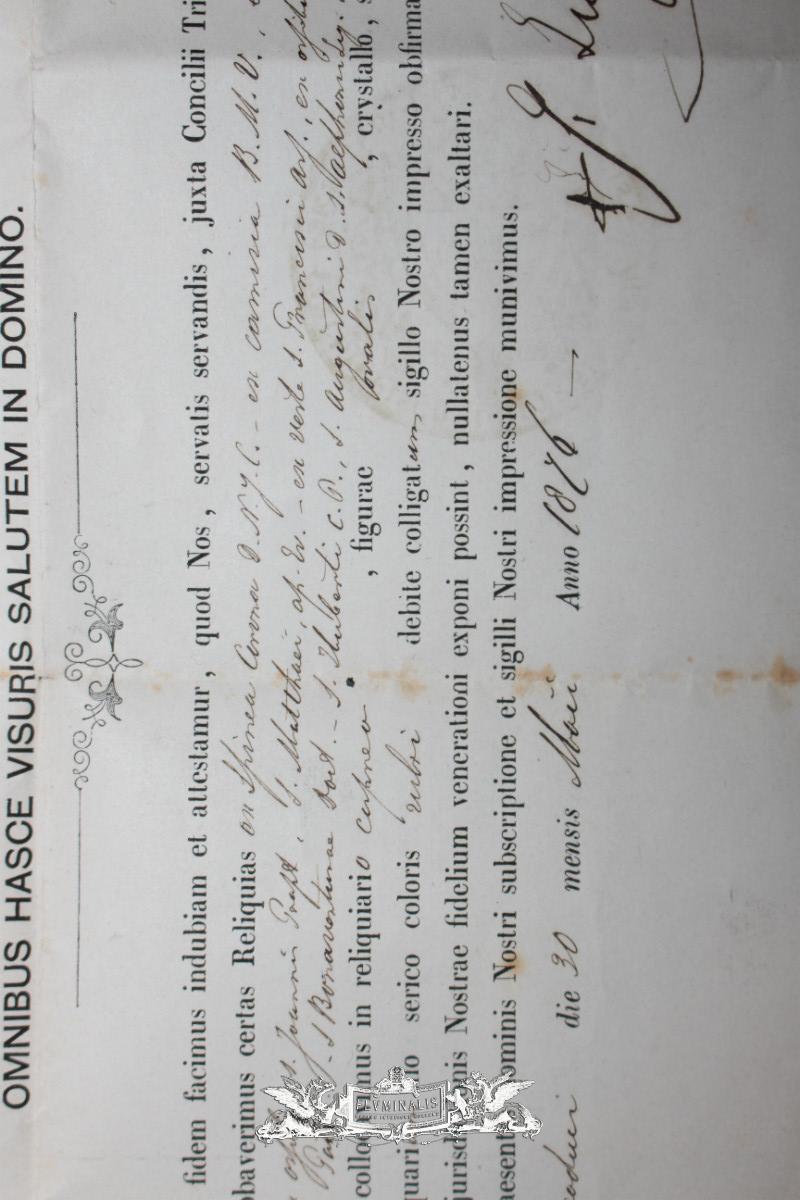 OMNIBUS HASCE VISURIS SALUTEM IN DOMINO.
fidem facimus indubiam et attestamur, quod Nos, servatis servandis, juxta Concilii Tri
baverimus certas Reliquias ex Spinea Corona D.N.J.C. - ex camisia B.M.V.,
ss. Joannis Bapt., S. Matthaei, ap. Ev. - ex veste S. Francisci Ass., ex
S. Bonaventurae Doct. - S. Huberti C.P., S. Augustini D.
collo mus in reliquiario cupreo, figurae ovalis, crystallo,
quari io serico coloris rubri debite colligatum, sigillo Nostro impresso obfirma
jurisd nis Nostrae fidelium venerationi exponi possint, nullatenus tamen exaltari.
aesent ominis Nostri subscriptione et sigilli Nostri impressione munivimus.
die 30 mensis Maii Anno 1876 —
ELVMINALIS